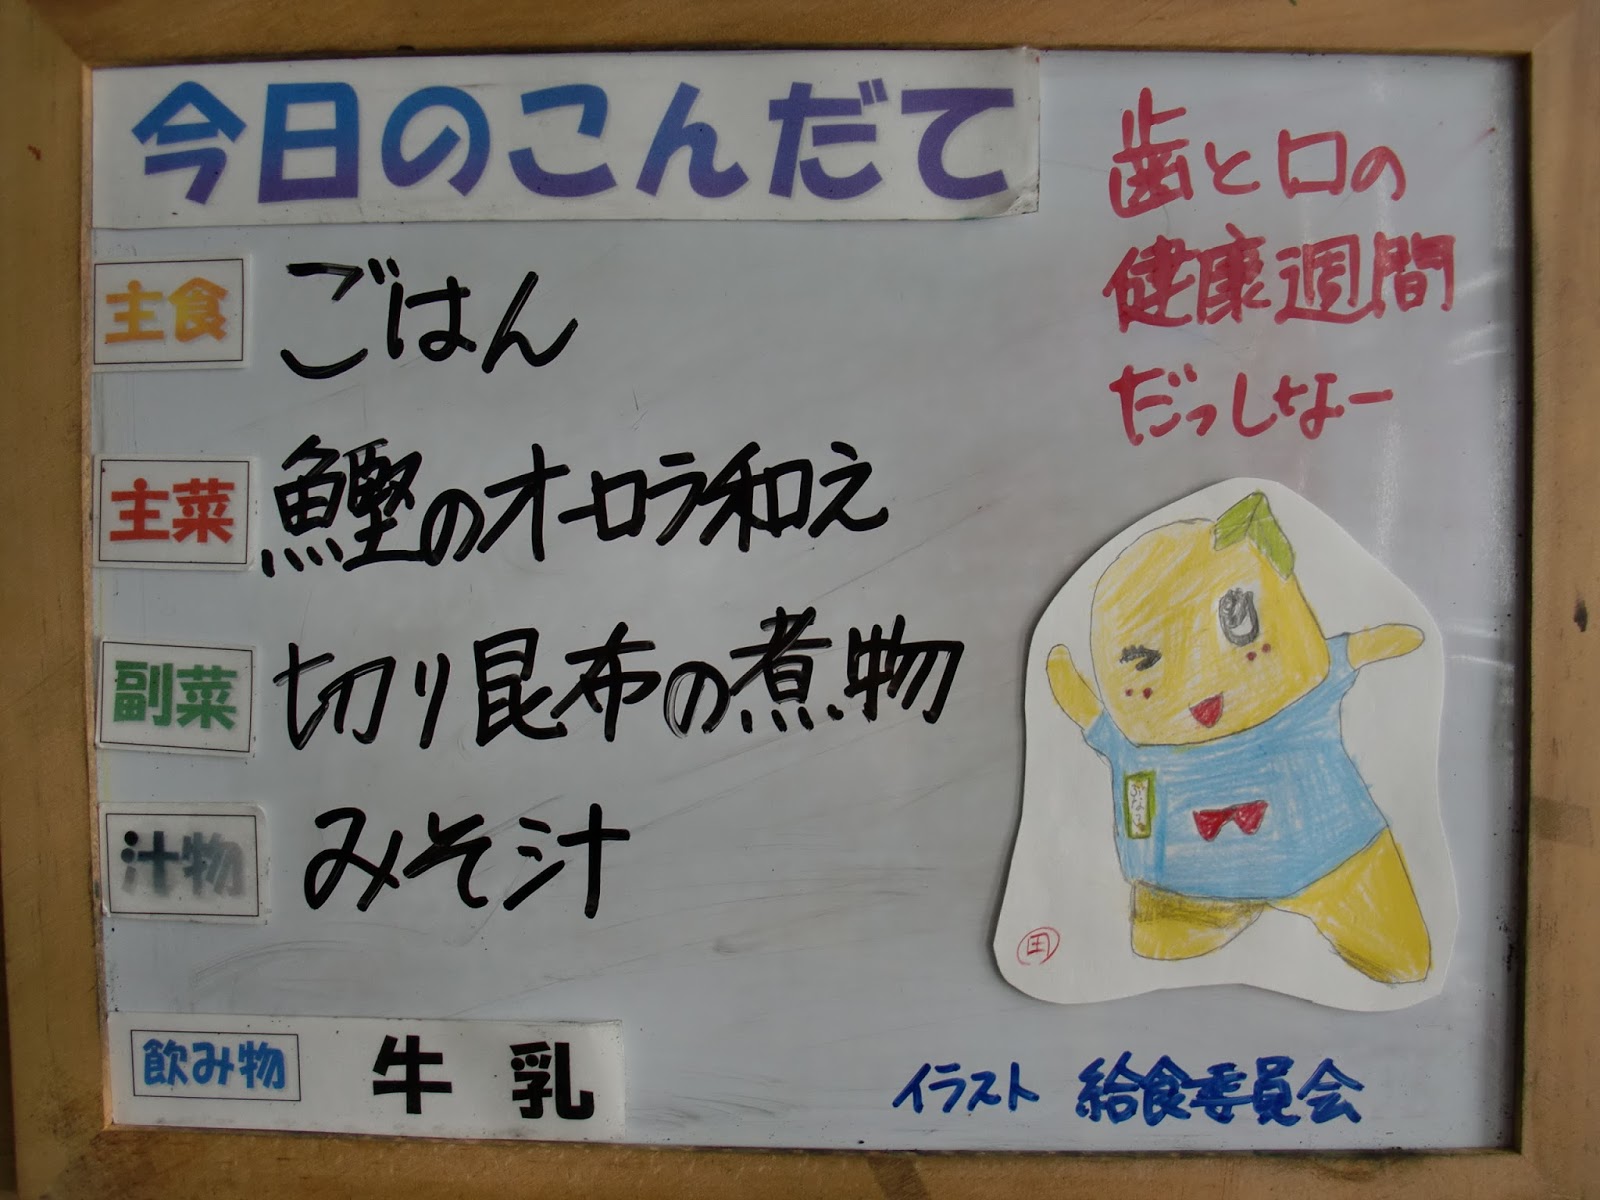 今日のこんだて
主食 ごはん
主菜 鰹のオーロラ和え
副菜 切り昆布の煮物
汁物 みそ汁
飲み物 牛乳
歯と口の
健康週間
だっしなー
ふなっ
イラスト 給食委員会